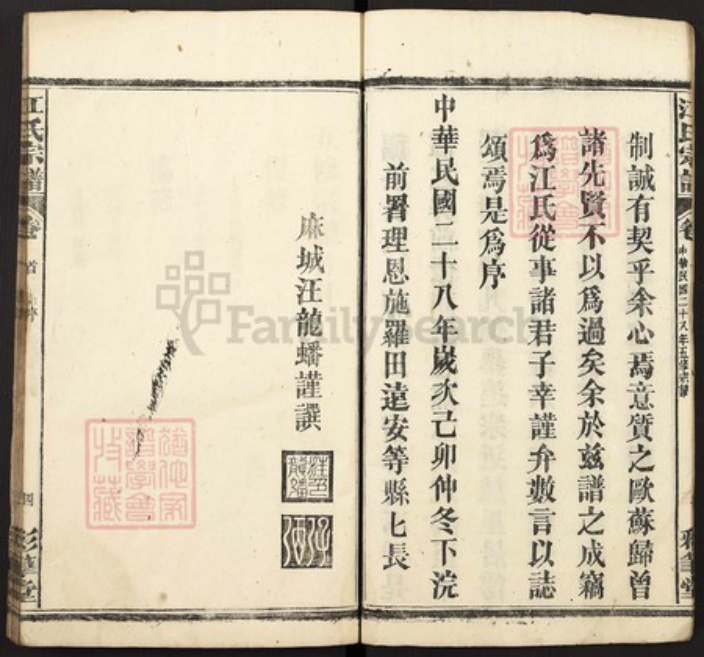 江氏宗譜
卷
中華民國二十八年五修宗譜
彩筆堂
制誠有契乎余心焉意質之歐蘇歸曾
諸先賢不以為過矣余於茲譜之成竊
為江氏從事諸君子幸謹弁數言以誌
頌焉是為序
中華民國二十八年歲次己卯仲冬下浣
前署理恩施羅田遠安等縣匕長
麻城汪龍蟠謹譔
江氏宗譜
卷首
四
彩筆堂
FamilySearch